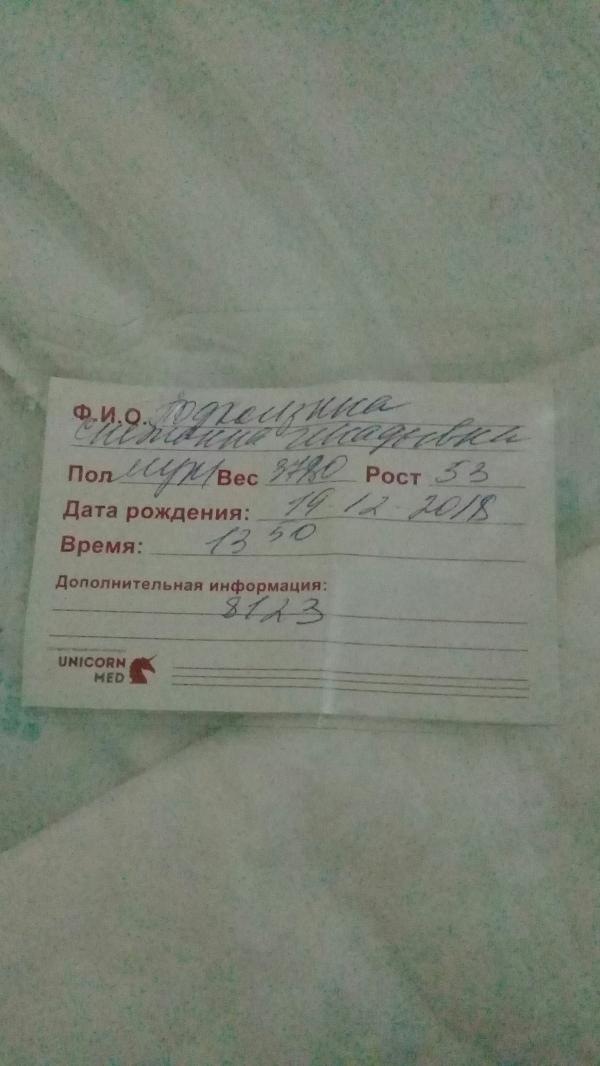 Ф.И.О.
Снежанна
Пол муж Вес Рост 53
Дата рождения: 19.12.2018
Время: 13 50
Дополнительная информация:
8123
UNICORN
MED